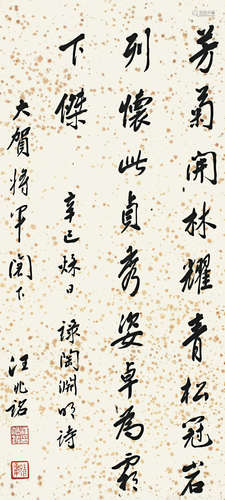 芳菊開林耀青松冠岩
列懷此貞秀姿卓為霜
下傑
辛巳秋日 録陶淵明詩
大賀将軍閣下
汪兆铭